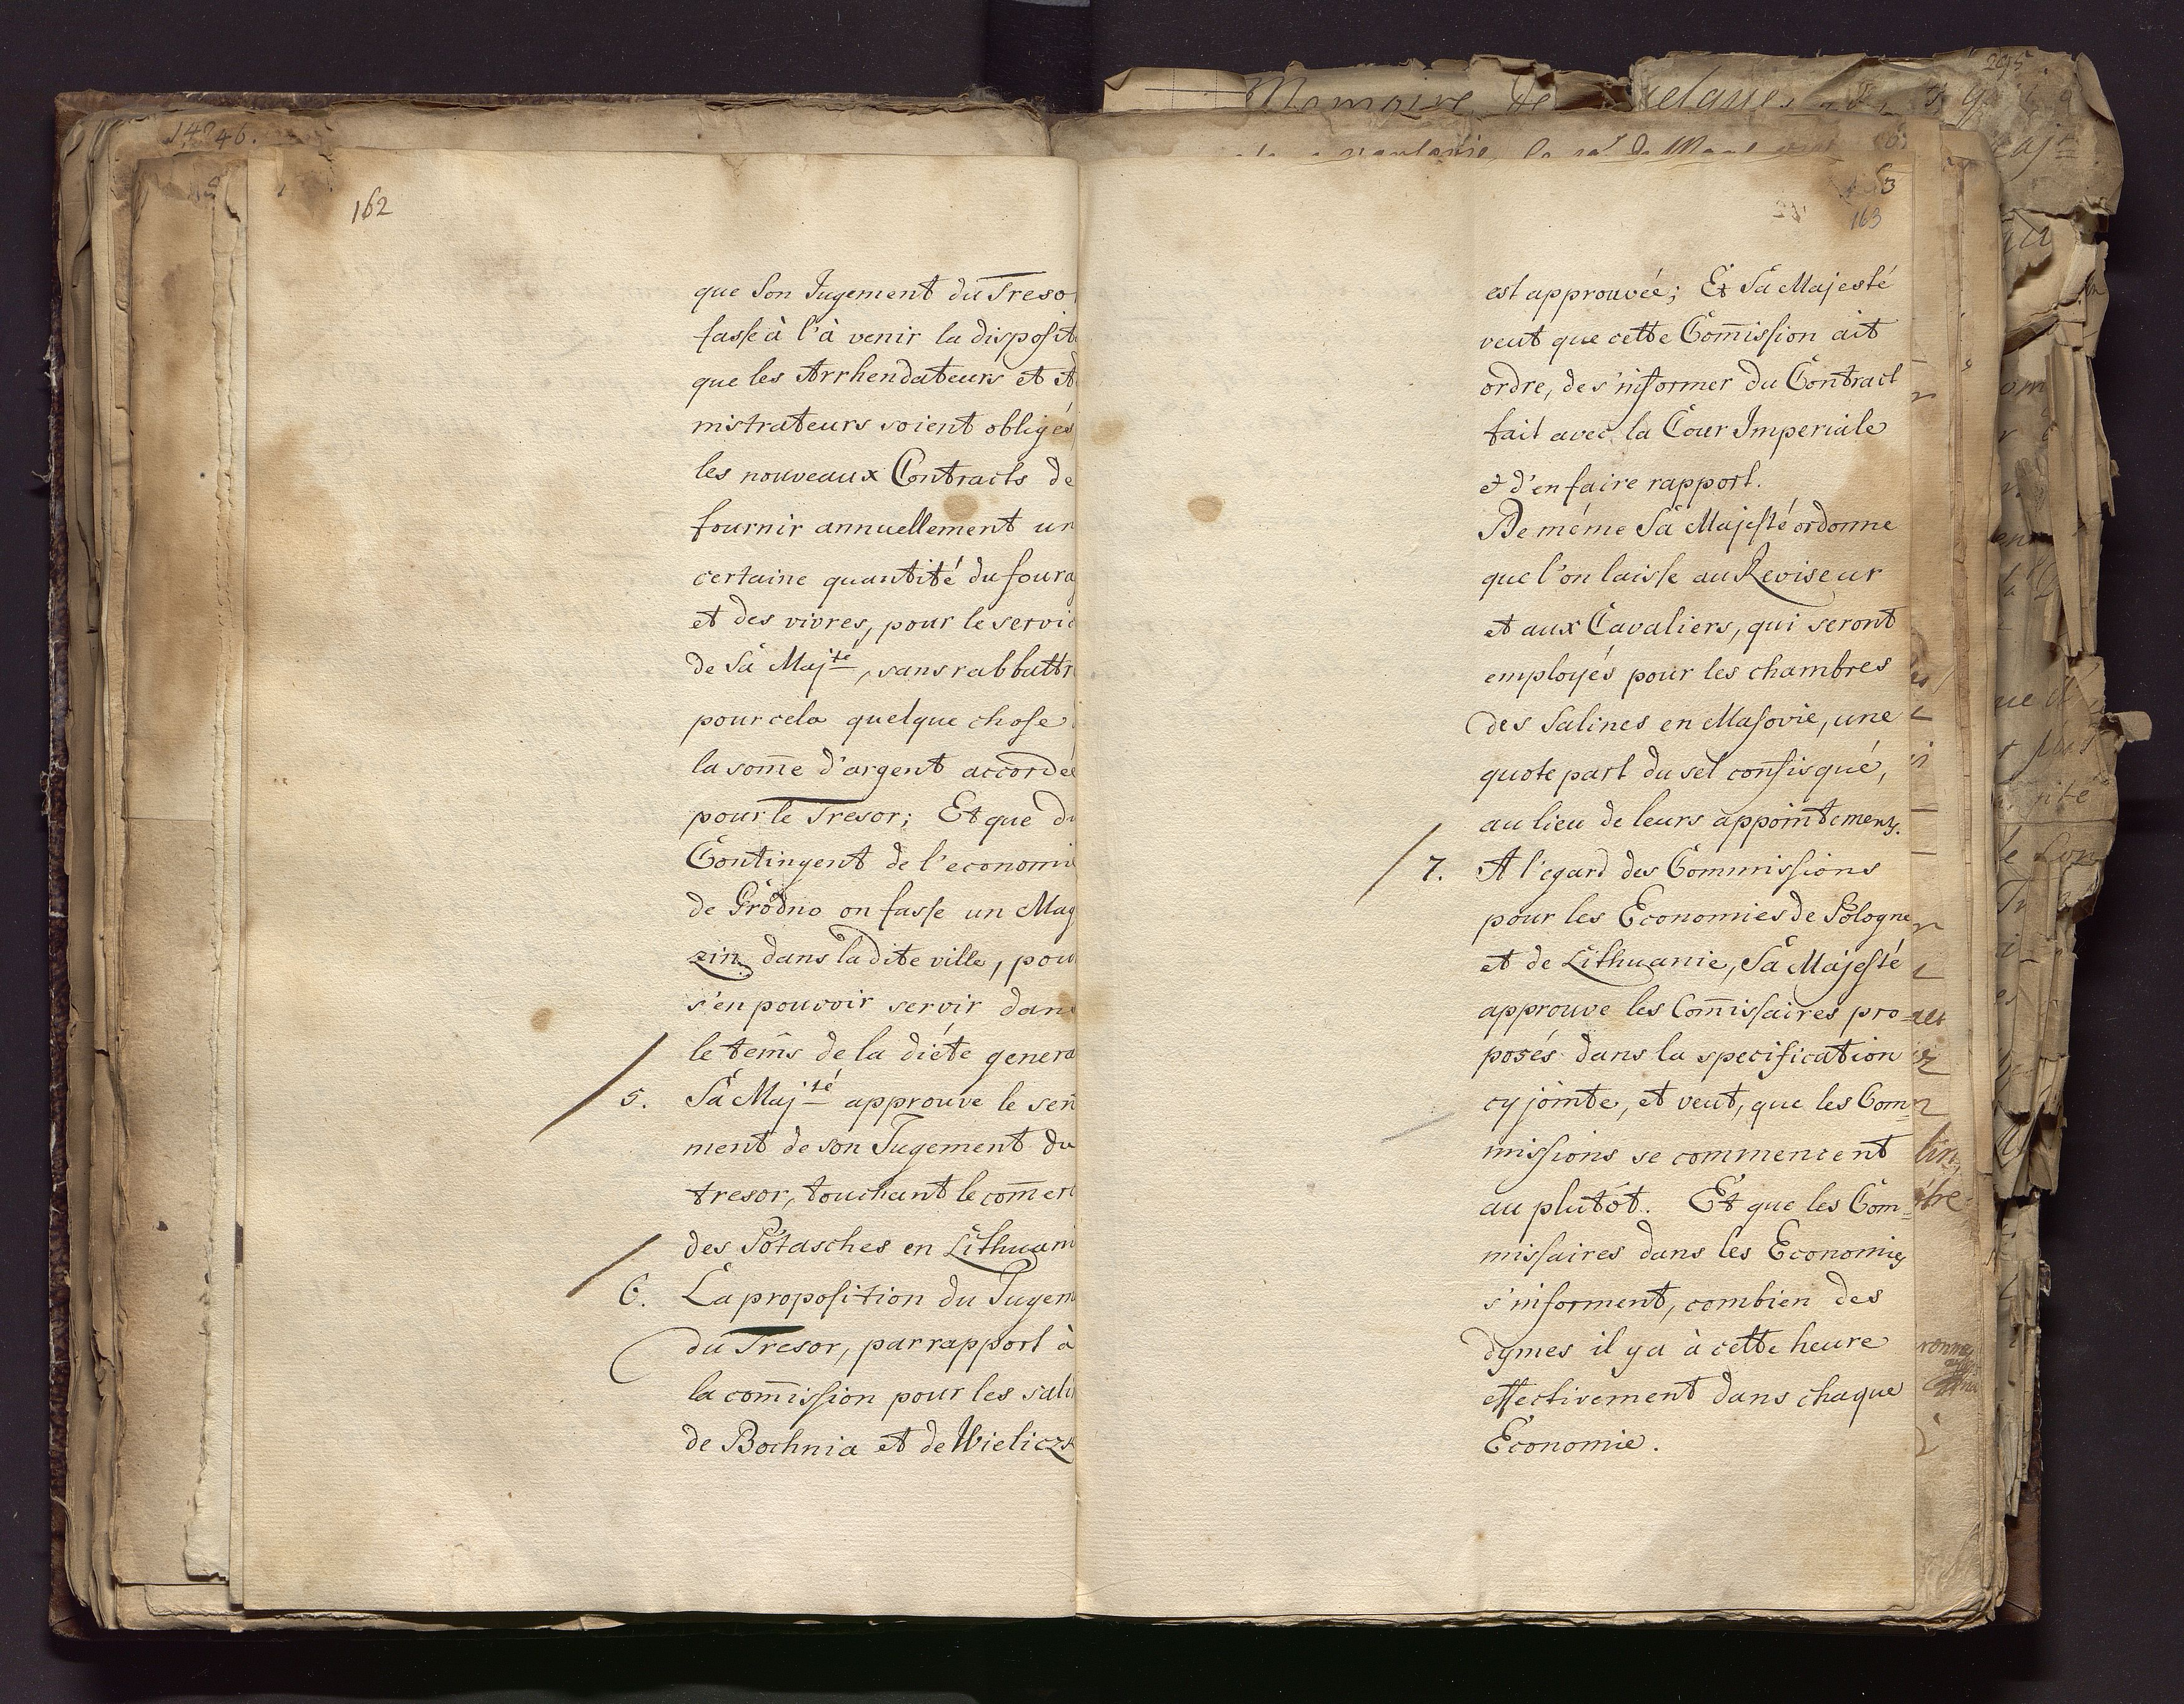 162
que Son Jugement du Treso
fasse à l'à venir la disposit
que les Arrhendateurs et A
nistrateurs soient obligés
les nouveaux Contracts de
fournir annuellement un
certaine quantité du foura
et des vivres, pour le servic
de Sa Maj.té, sans rabbattr
pour cela quelque chose
la som̅e d'argent accordée
pour le Tresor; Et que du
Contingent de l'economi
de Grodno on fasse un Mag
zin dans la dite ville, pou
s'en pouvoir servir dans
le tem̅s de la diéte genera
5. Sa Maj.té approuve le sen
ment de son Jugement du
tresor, touchant le com̅er
des Potasches en Lithuani
6. La proposition du Jugem
du Tresor, par rapport à
la com̅ission pour les sali
de Bochnia et de Wieliczk
163
est approuvée; Et Sa Majesté
veut que cette Com̅ission ait
ordre, de s'informer du Contract
fait avec la Cour Imperiale
et d'en faire rapport.
De méme Sa Majesté ordonne
que l'on laisse au Reviseur
et aux Cavaliers, qui seront
employés pour les chambres
des Salines en Masovie, une
quote part du sel confisqué,
au lieu de leurs appointements.
7. A l'egard des Commissions
pour les Economies de Pologne
et de Lithuanie, Sa Majesté
approuve les Com̅issaires pro-
posés dans la specification
cy jointe, et veut, que les Com-
missions se commencent
au plutót. Et que les Com-
missaires dans les Economies
s'informent, combien des
dymes il y a à cette heure
effectivement dans chaque
Economie.